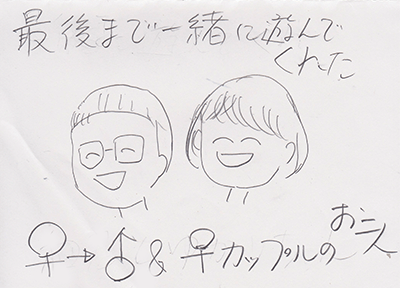 最後まで一緒に遊んで
くれた
♀→♂&♀カップルのお二人